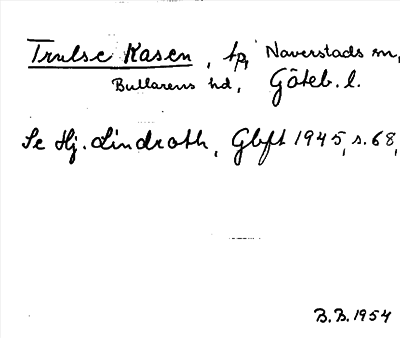 Trulse Kasen, tp, Naverstads sn,
Bullarens hd, Göteb. l.
Se Hj. Lindroth, Gbft 1945, s. 68,
B.B. 1954